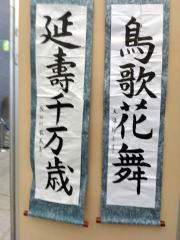 鳥歌花舞
延壽千万歳